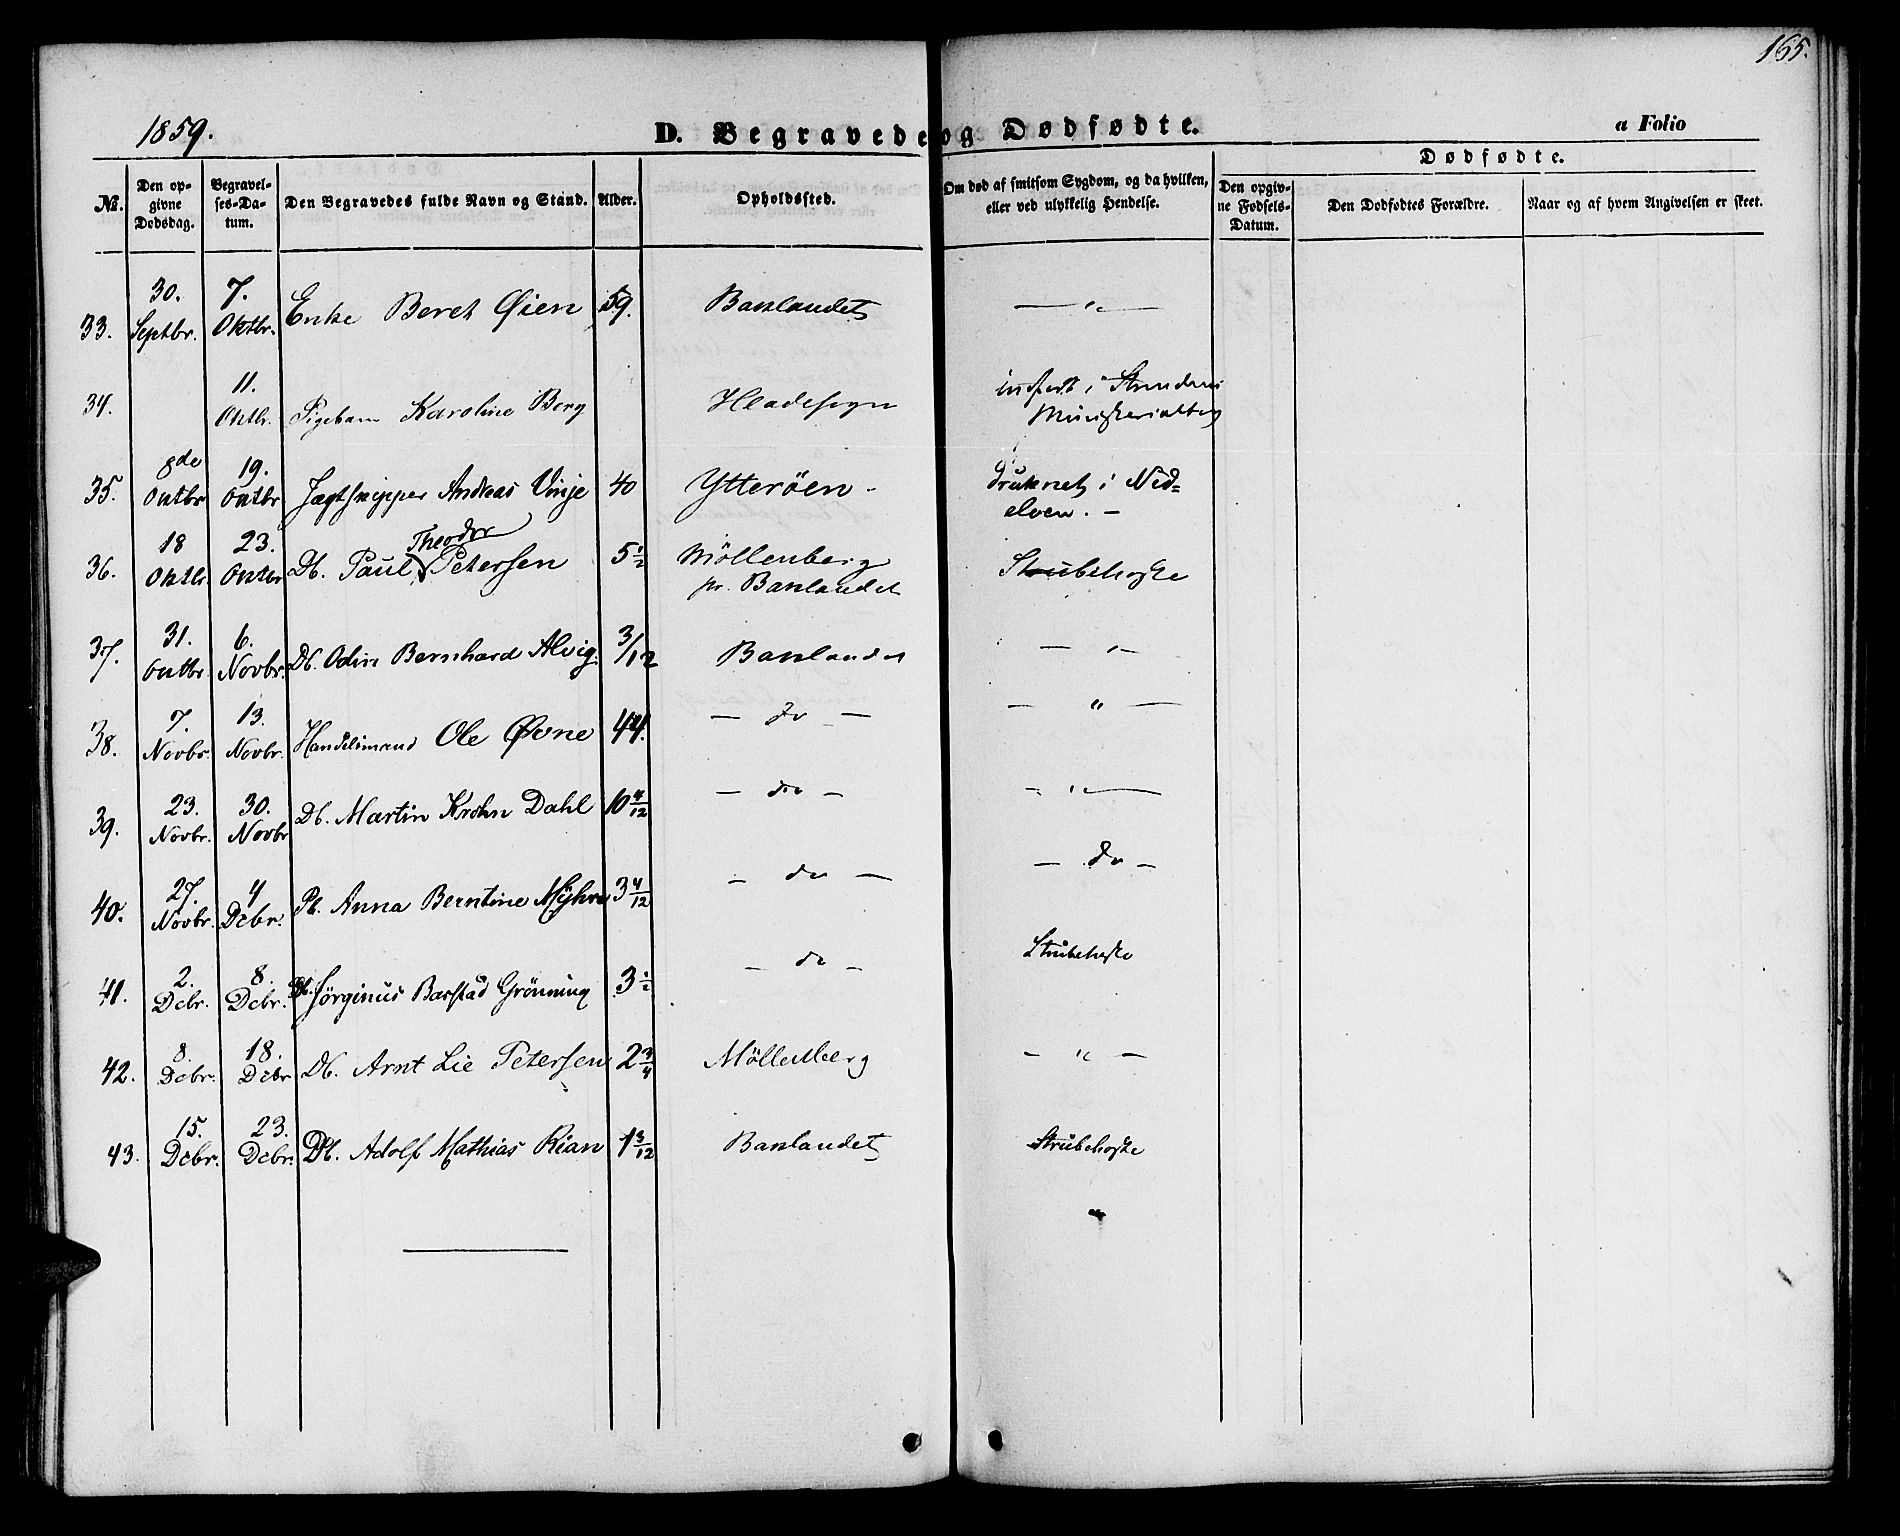 165.
1859.
D. Begravede og Dødfødte.
a Folio
Dødfødte.
No.
Den op-
givne
Dødsdag.
Begravel-
ses-Da-
tum.
Den Begravedes fulde Navn og Stand.
Alder.
Opholdssted.
Om død af smitsom Sygdom, og da hvilken,
eller ved ulykkelig Hendelse.
Den opgiv-
ne Fødsels-
Datum.
Den Dødfødtes Forældre.
Naar og af hvem Angivelsen er skeet.
33. 30. Septbr. 7. Oktbr. Enke Beret Øien 59. Baklandet — " —
34. 11. Oktbr. Pigebarn Karoline Berg Hladesogn indført i Strindens
Ministerialbog
35. 8de Oktbr 19. Oktbr Jægtskipper Andreas Vinje 40 Ytteröen - druknet i Nid=
elven. —
36. 18 Oktbr 23. Oktbr Db. Paul Theodor Petersen 5 1/2 Möllenberg
pr. Baklandet Strubehoste
37. 31. Oktbr. 6. Novbr. Db. Odin Bernhard Alvig. 3/12 Baklandet — " —
38. 7. Novbr. 13. Novbr. Handelsmand Ole Øvne 44. — do — — " —
39. 23. Novbr. 30. Novbr Db. Martin Krohn Dahl 10 4/12 — do — — " —
40. 27. Novbr. 4 Dcbr. Pb. Anna Berntine Myhre 3 4/12 — do — — do —
41. 2. Dcbr. 8. Dcbr. Db. Jörginus Barstad Grönning 3 1/2 — do — Strubehoste
42. 8. Dcbr. 18. Dcbr Db. Arnt Lie Petersen 2 3/4 Möllenberg — " —
43. 15. Dcbr. 23. Dcbr. Db. Adolf Mathias Rian 1 3/12 Baklandet Strubehoste